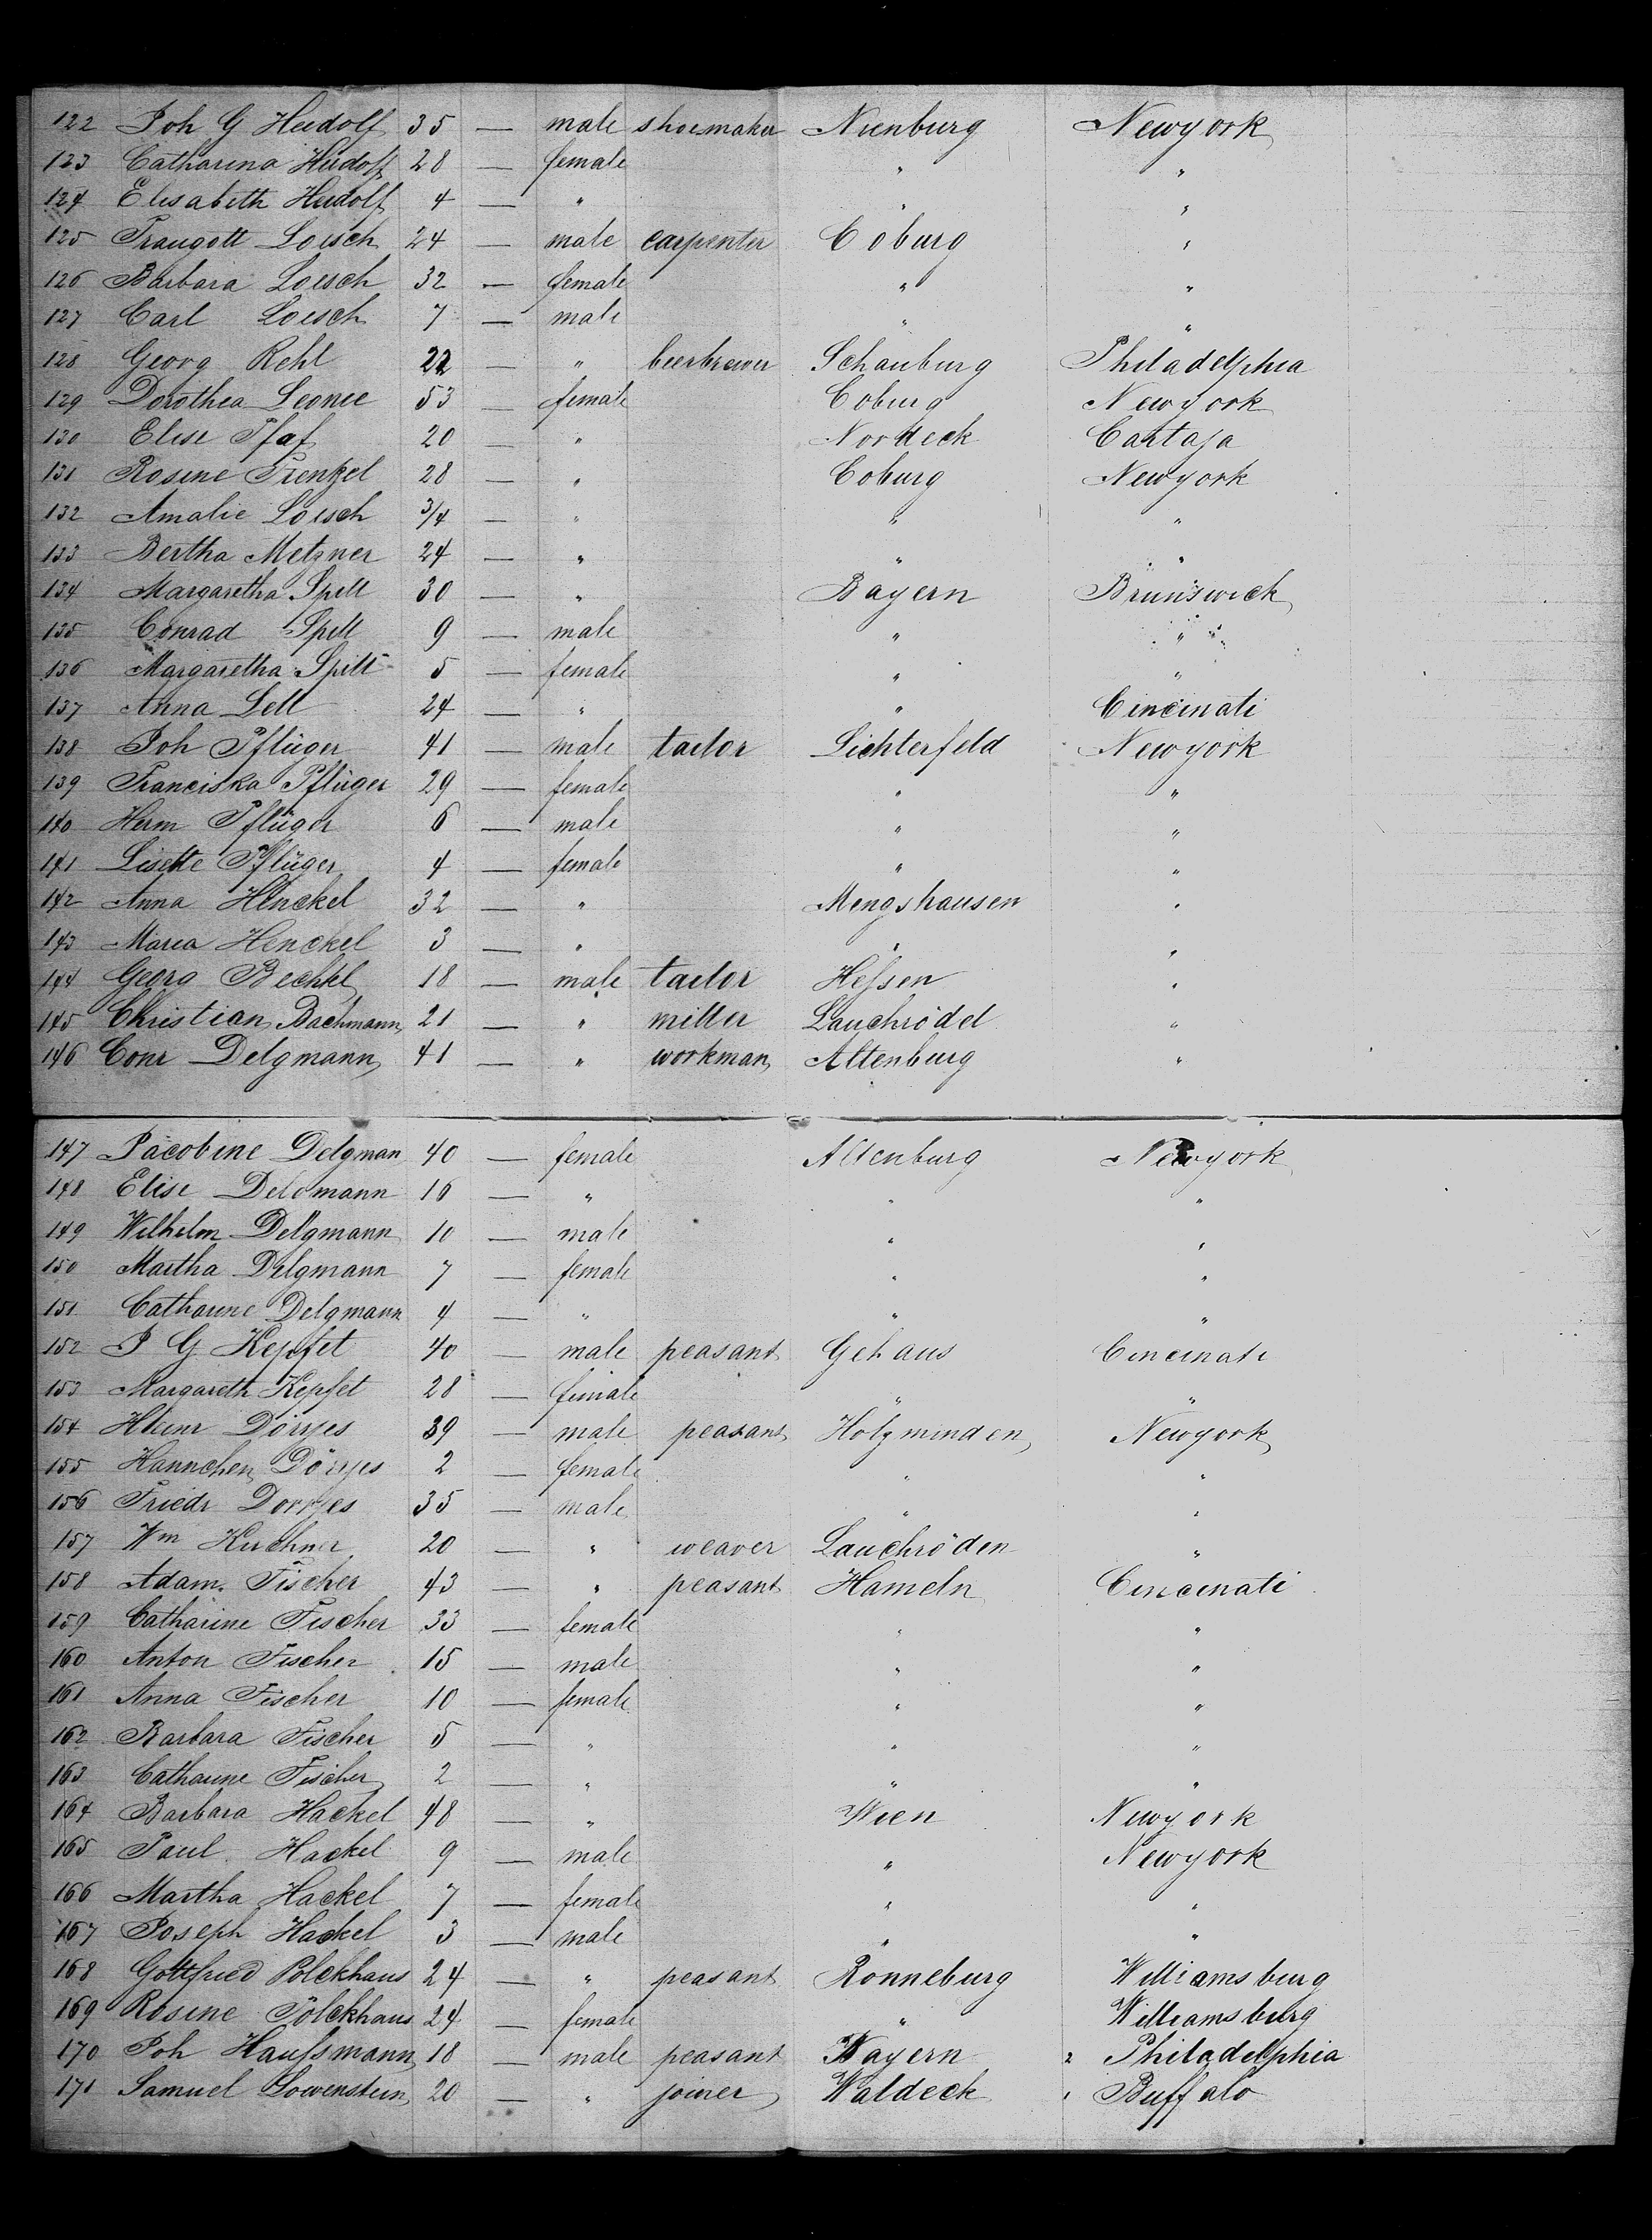 122 Joh G Heidolf 35 — male shoemaker Nienburg Newyork
123 Catharina Heidolf 28 — female " "
124 Elisabeth Heidolf 4 — " " "
125 Traugott Loesch 24 — male carpenter Coburg "
126 Barbara Loesch 32 — female " "
127 Carl Loesch 7 — male " "
128 Georg Rehl 22 — " beerbrewer Schauburg Philadelphia
129 Dorothea Leonie 53 — female Coburg Newyork
130 Elise Pfaf 20 — " Nordeck
131 Rosine Frenzel 28 — " Coburg Newyork
132 Amalie Loesch 3/4 — " " "
133 Bertha Metzner 24 — " " "
134 Margaretha Spell 30 — " Bayern Brunswick
135 Conrad Spell 9 — male " "
136 Margaretha Spell 5 — female " "
137 Anna Sell 24 — " " Cincinati
138 Joh Pflüger 41 — male tailor Lichterfeld Newyork
139 Franciska Pflüger 29 — female " "
140 Herm Pflüger 6 — male " "
141 Lisette Pflüger 4 — female " "
142 Anna Henckel 32 — " Mengshausen "
143 Maria Henckel 3 — " " "
144 Georg Bechtel 18 — male tailor Hessen "
145 Christian Bachmann 21 — " miller Lauchrödel "
146 Conr Delgmann 41 — " workman Altenburg "
147 Jacobine Delgman 40 — female Altenburg Newyork
148 Elise Delgmann 16 — " " "
149 Wilhelm Delgmann 10 — male " "
150 Martha Delgmann 7 — female " "
151 Catharine Delgmann 4 — " " "
152 J G Kepfet 40 — male peasant Gehaus Cincinati
153 Margareth Kepfet 28 — female " "
154 Heinr Dörrjes 39 — male peasant Holzminden Newyork
155 Hannchen Dörrjes 2 — female " "
156 Friedr Dorrjes 35 — male " "
157 Wm Kirchner 20 — " weaver Lauchröden "
158 Adam Fischer 43 — " peasant Hameln Cincinati
159 Catharine Fischer 33 — female " "
160 Anton Fischer 15 — male " "
161 Anna Fischer 10 — female " "
162 Barbara Fischer 5 — " " "
163 Catharine Fischer 2 — " " "
164 Barbara Hackel 48 — " Wien Newyork
165 Paul Hackel 9 — male " Newyork
166 Martha Hackel 7 — female " "
167 Joseph Hackel 3 — male " "
168 Gottfried Pölckhaus 24 — " peasant Ronneburg Williamsburg
169 Rosine Pölckhaus 24 — female " Williamsburg
170 Joh Haussmann 18 — male peasant Bayern Philadelphia
171 Samuel Lowenstein 20 — " joiner Waldeck Buffalo